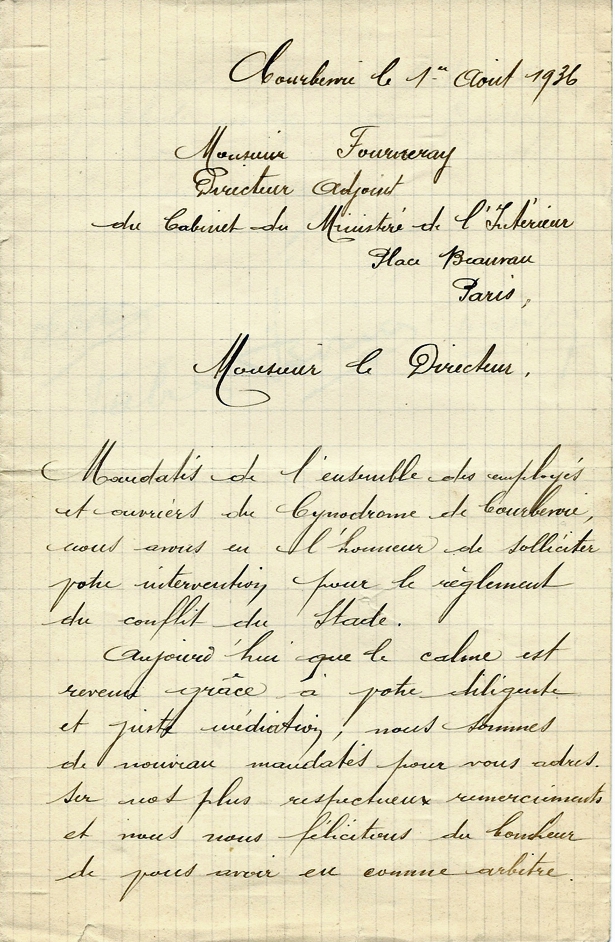 Courbevoie le 1er Août 1936
Monsieur Fourneray
Directeur Adjoint
du Cabinet du Ministère de l'Intérieur
Place Beauvau
Paris,
Monsieur le Directeur,
Mandatés de l'ensemble des employés
et ouvriers du Cynodrome de Courbevoie,
nous avons eu l'honneur de solliciter
votre intervention pour le règlement
du conflit du Stade.
Aujourd'hui que le calme est
revenu grâce à votre diligente
et juste médiation, nous sommes
de nouveau mandatés pour vous adres-
ser nos plus respectueux remerciments
et nous nous félicitons du bonheur
de vous avoir eu comme arbitre.